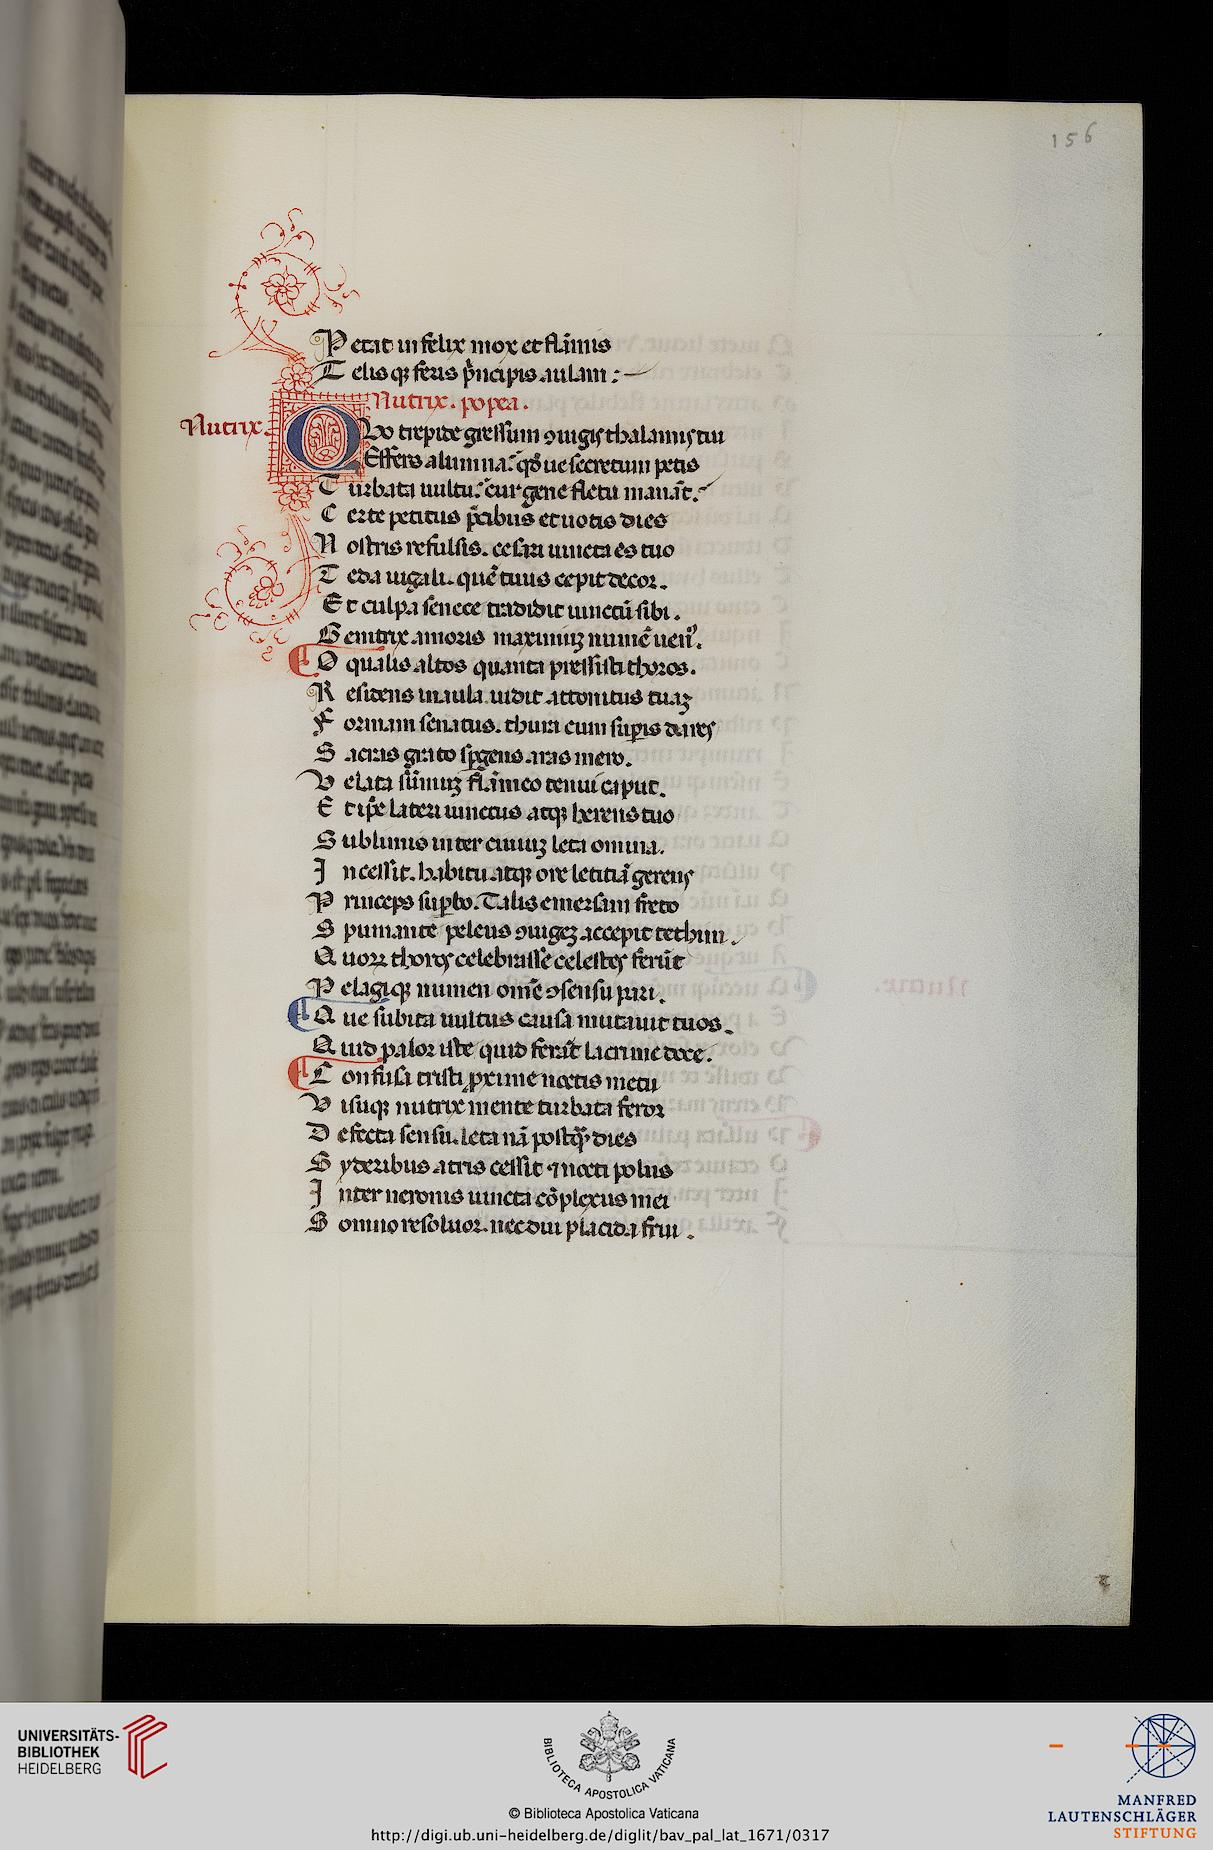 156
P etat infelix mox et flāmis
T elisq̨ feris p̄ncipis aulam :
Nutrix. popea.
Nutrix.
Quo trepide gressum ꝯiugis thalamis tui
Effers alumna. qd̄ ue secretum petis
T urbata uultu. cur gene fletu manāt.
C erte petitus p̄cibus et uotis dies
N ostris refulsit. cesari iuncta es tuo
T eda iugali. quē tuus cepit decor.
E t culpa senece tradidit uinctū sibi.
G enitrix amoris maximuȝ numē ueneꝰ.
O qualis altos quanta pressisti thoros.
R esidens in aula. uidit attonitus tuaȝ
F ormam senatus. thura cum suꝑis dares
S acras grato sꝑgens aras mero.
V elata sūmuȝ flāmeo tenui caput.
E t ip̄e lateri iunctus atq̨ herens tuo
S ublimis inter ciuiuȝ leta omina.
I ncessit. habitu atq̨ ore letitiā gerens
P rinceps suꝑbo. Talis emersam freto
S pumante peleus ꝯiugeȝ accepit tethim.
Q uoꝝ thoros celebrasse celestes ferūt
P elagiq̨ numen om̄e ꝯsensu pari.
Q ue subita uultus causa mutauit tuos.
Q uid palor iste quid ferāt lacrime doce.
C onfusa tristi ꝓxime noctis metu
V isuq̨ nutrix mente turbata feror
D efecta sensu. leta nā postq̄ꝫ dies
S yderibus atris cessit ⁊ nocti polus
I nter neronis uincta cōplexus mei
S omno resoluor. nec diu placida frui.
UNIVERSITÄTS-
BIBLIOTHEK
HEIDELBERG
BIBLIOTECA APOSTOLICA VATICANA
© Biblioteca Apostolica Vaticana
http://digi.ub.uni-heidelberg.de/diglit/bav_pal_lat_1671/0317
MANFRED
LAUTENSCHLÄGER
STIFTUNG